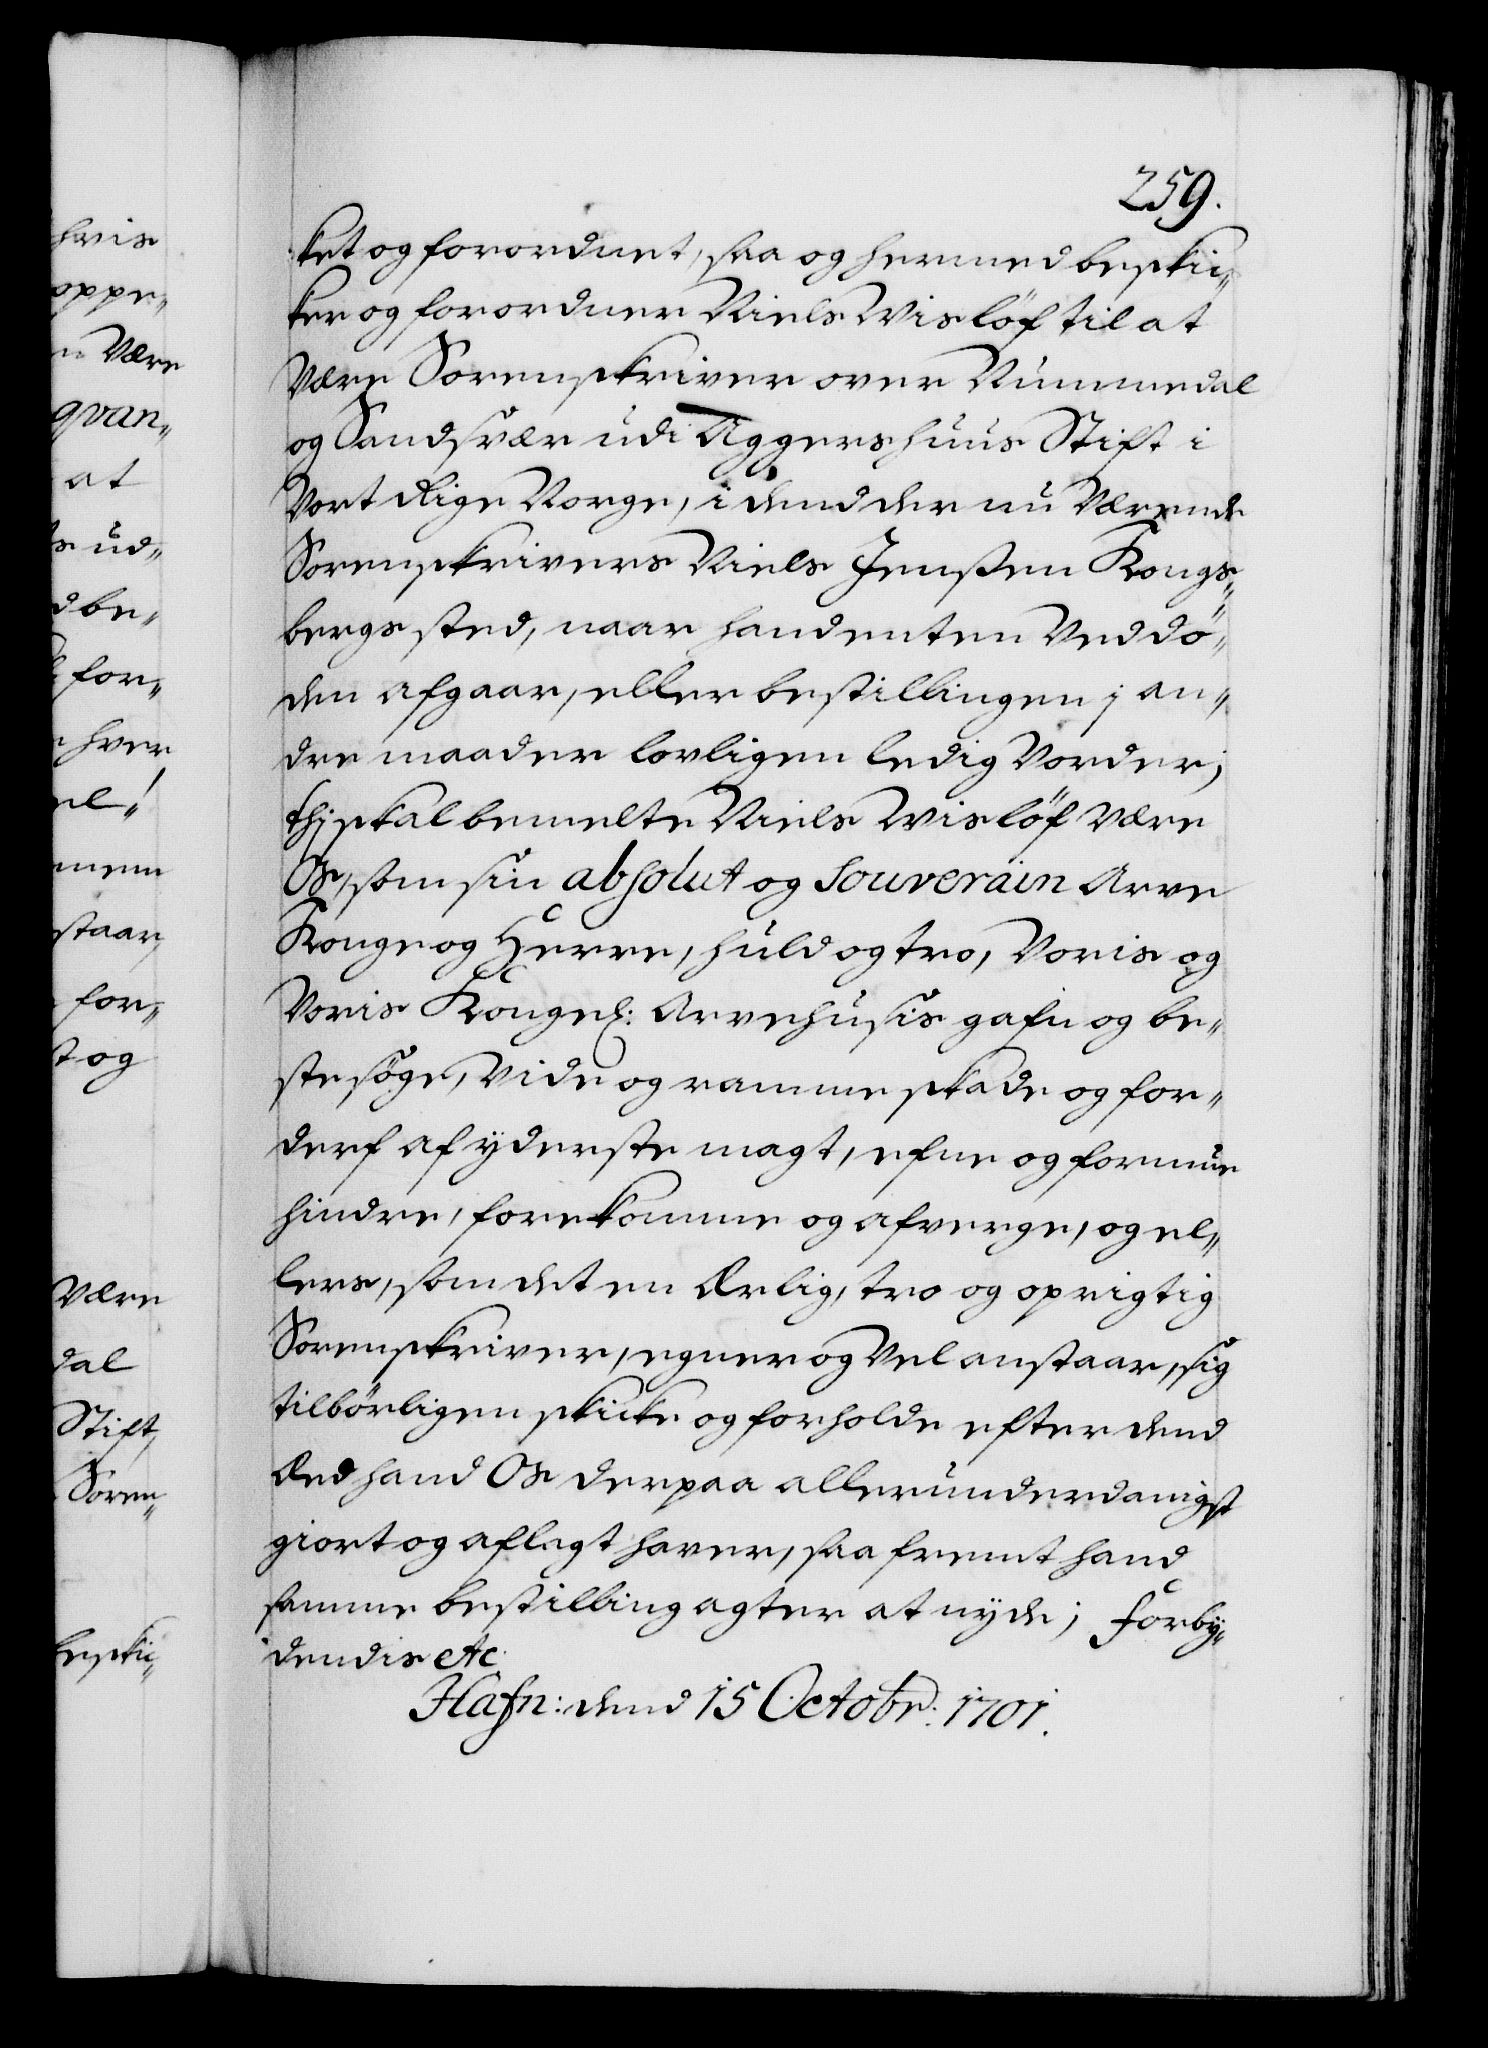 259.
ket og forordnet, saa og hermed beskic„
ker og forordner Niels Wislöf til at
være Sorenskriver over Nummedal
og Sandsvær udi Aggershuus Stift i
Vort Rige Norge, i dend der nu værende
Sorenskrivers Niels Jenssen Kongs„
bergs sted, naar hand enten ved dö„
den afgaar, eller bestillingen j an„
dre maader lovligen ledig vorder;
thj skal bemelte Niels Wislöf være
Os, som sin absolut og Souverain Arve
Konge og Herre, huld og tro, Voris og
Voris Kongel: Arvehusis gafn og be„
ste söge, vide og ramme skade og for„
derf af yderste magt, efne og formue
hindre, forekomme og afverge, og el„
lers, som det en Ærlig, tro og oprigtig
Sorenskriver, egner og vel anstaar, sig
tilbörligen skicke og forholde efter dend
Æed hand Os derpaa allerunderdanigst
giort og aflagt haver, saa fremt hand
samme bestilling agter at nyde; Forby„
dendis etc
Hafn: dend 15 Octobr: 1701.
hvis
oppe„
Være
qvan„
at
ud„
be„
for„
hver
el!
staar,
for„
og
Være
dal
Stift,
Soren„
beskic„